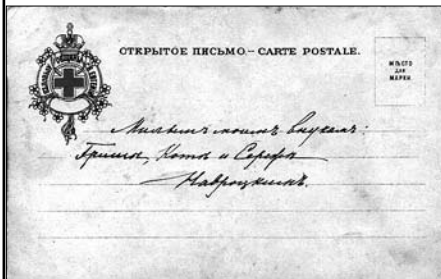 ОТКРЫТОЕ ПИСЬМО.–CARTE POSTALE.
МѢСТО
ДЛЯ
МАРКИ
Милымъ моимъ внукамъ:
Гришѣ, Котѣ и Сережѣ
Навроцкимъ.